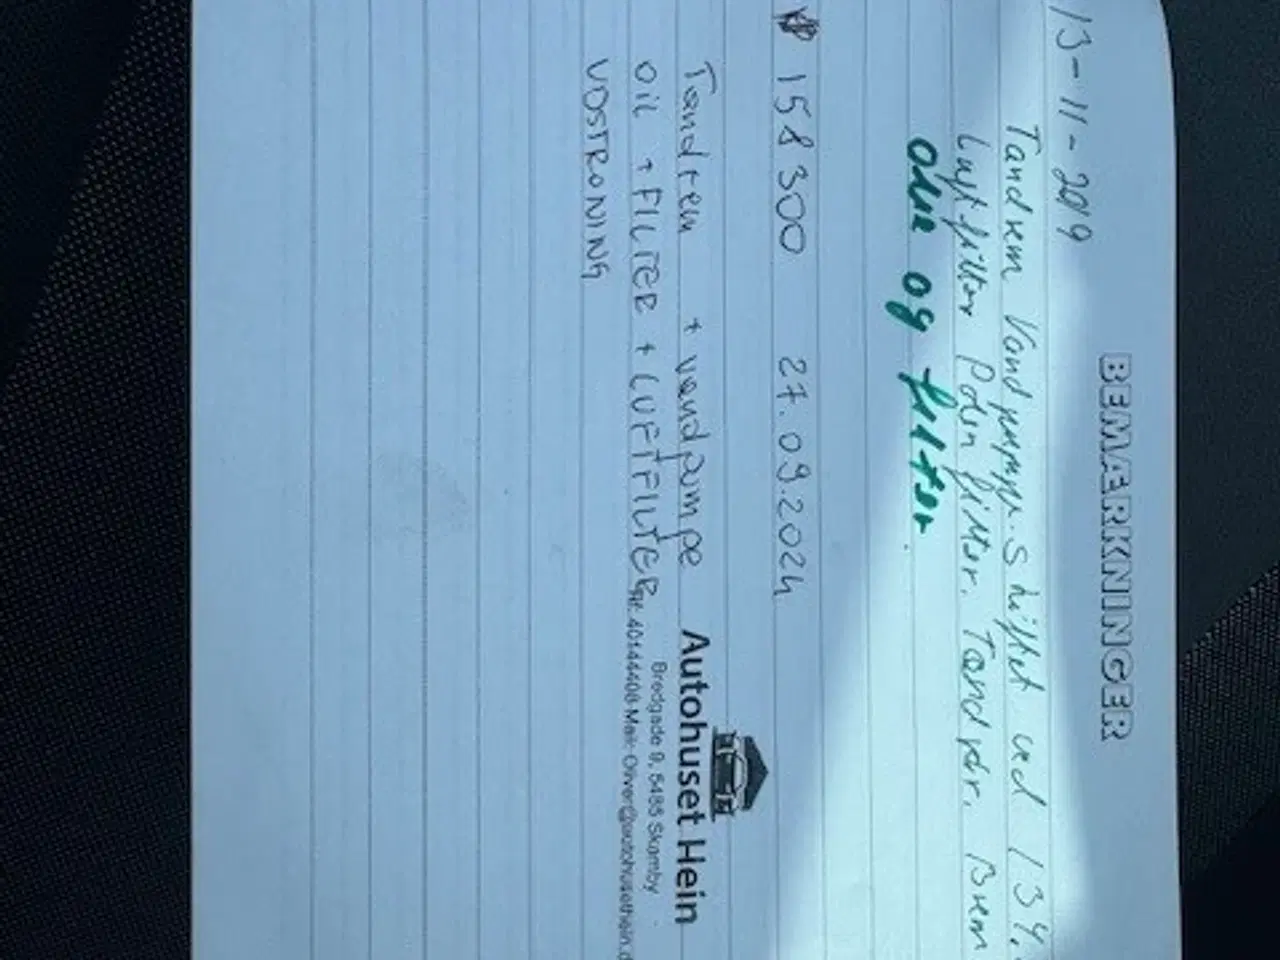 BEMÆRKNINGER
13-11-2019
Tandrem Vandpumpe. Skiftet ved 134.
Luftfilter Polenfilter. Tændrør. Brem
Olie og filter.
158300 27.09.2024
Tandrem + vandpumpe
OIL + FILTER + LUFTFILTER
UDSTRONING
Autohuset Hein
Bredgade 9, 5485 Skamby
40144400 Mail: Oliver@autohusethein.d